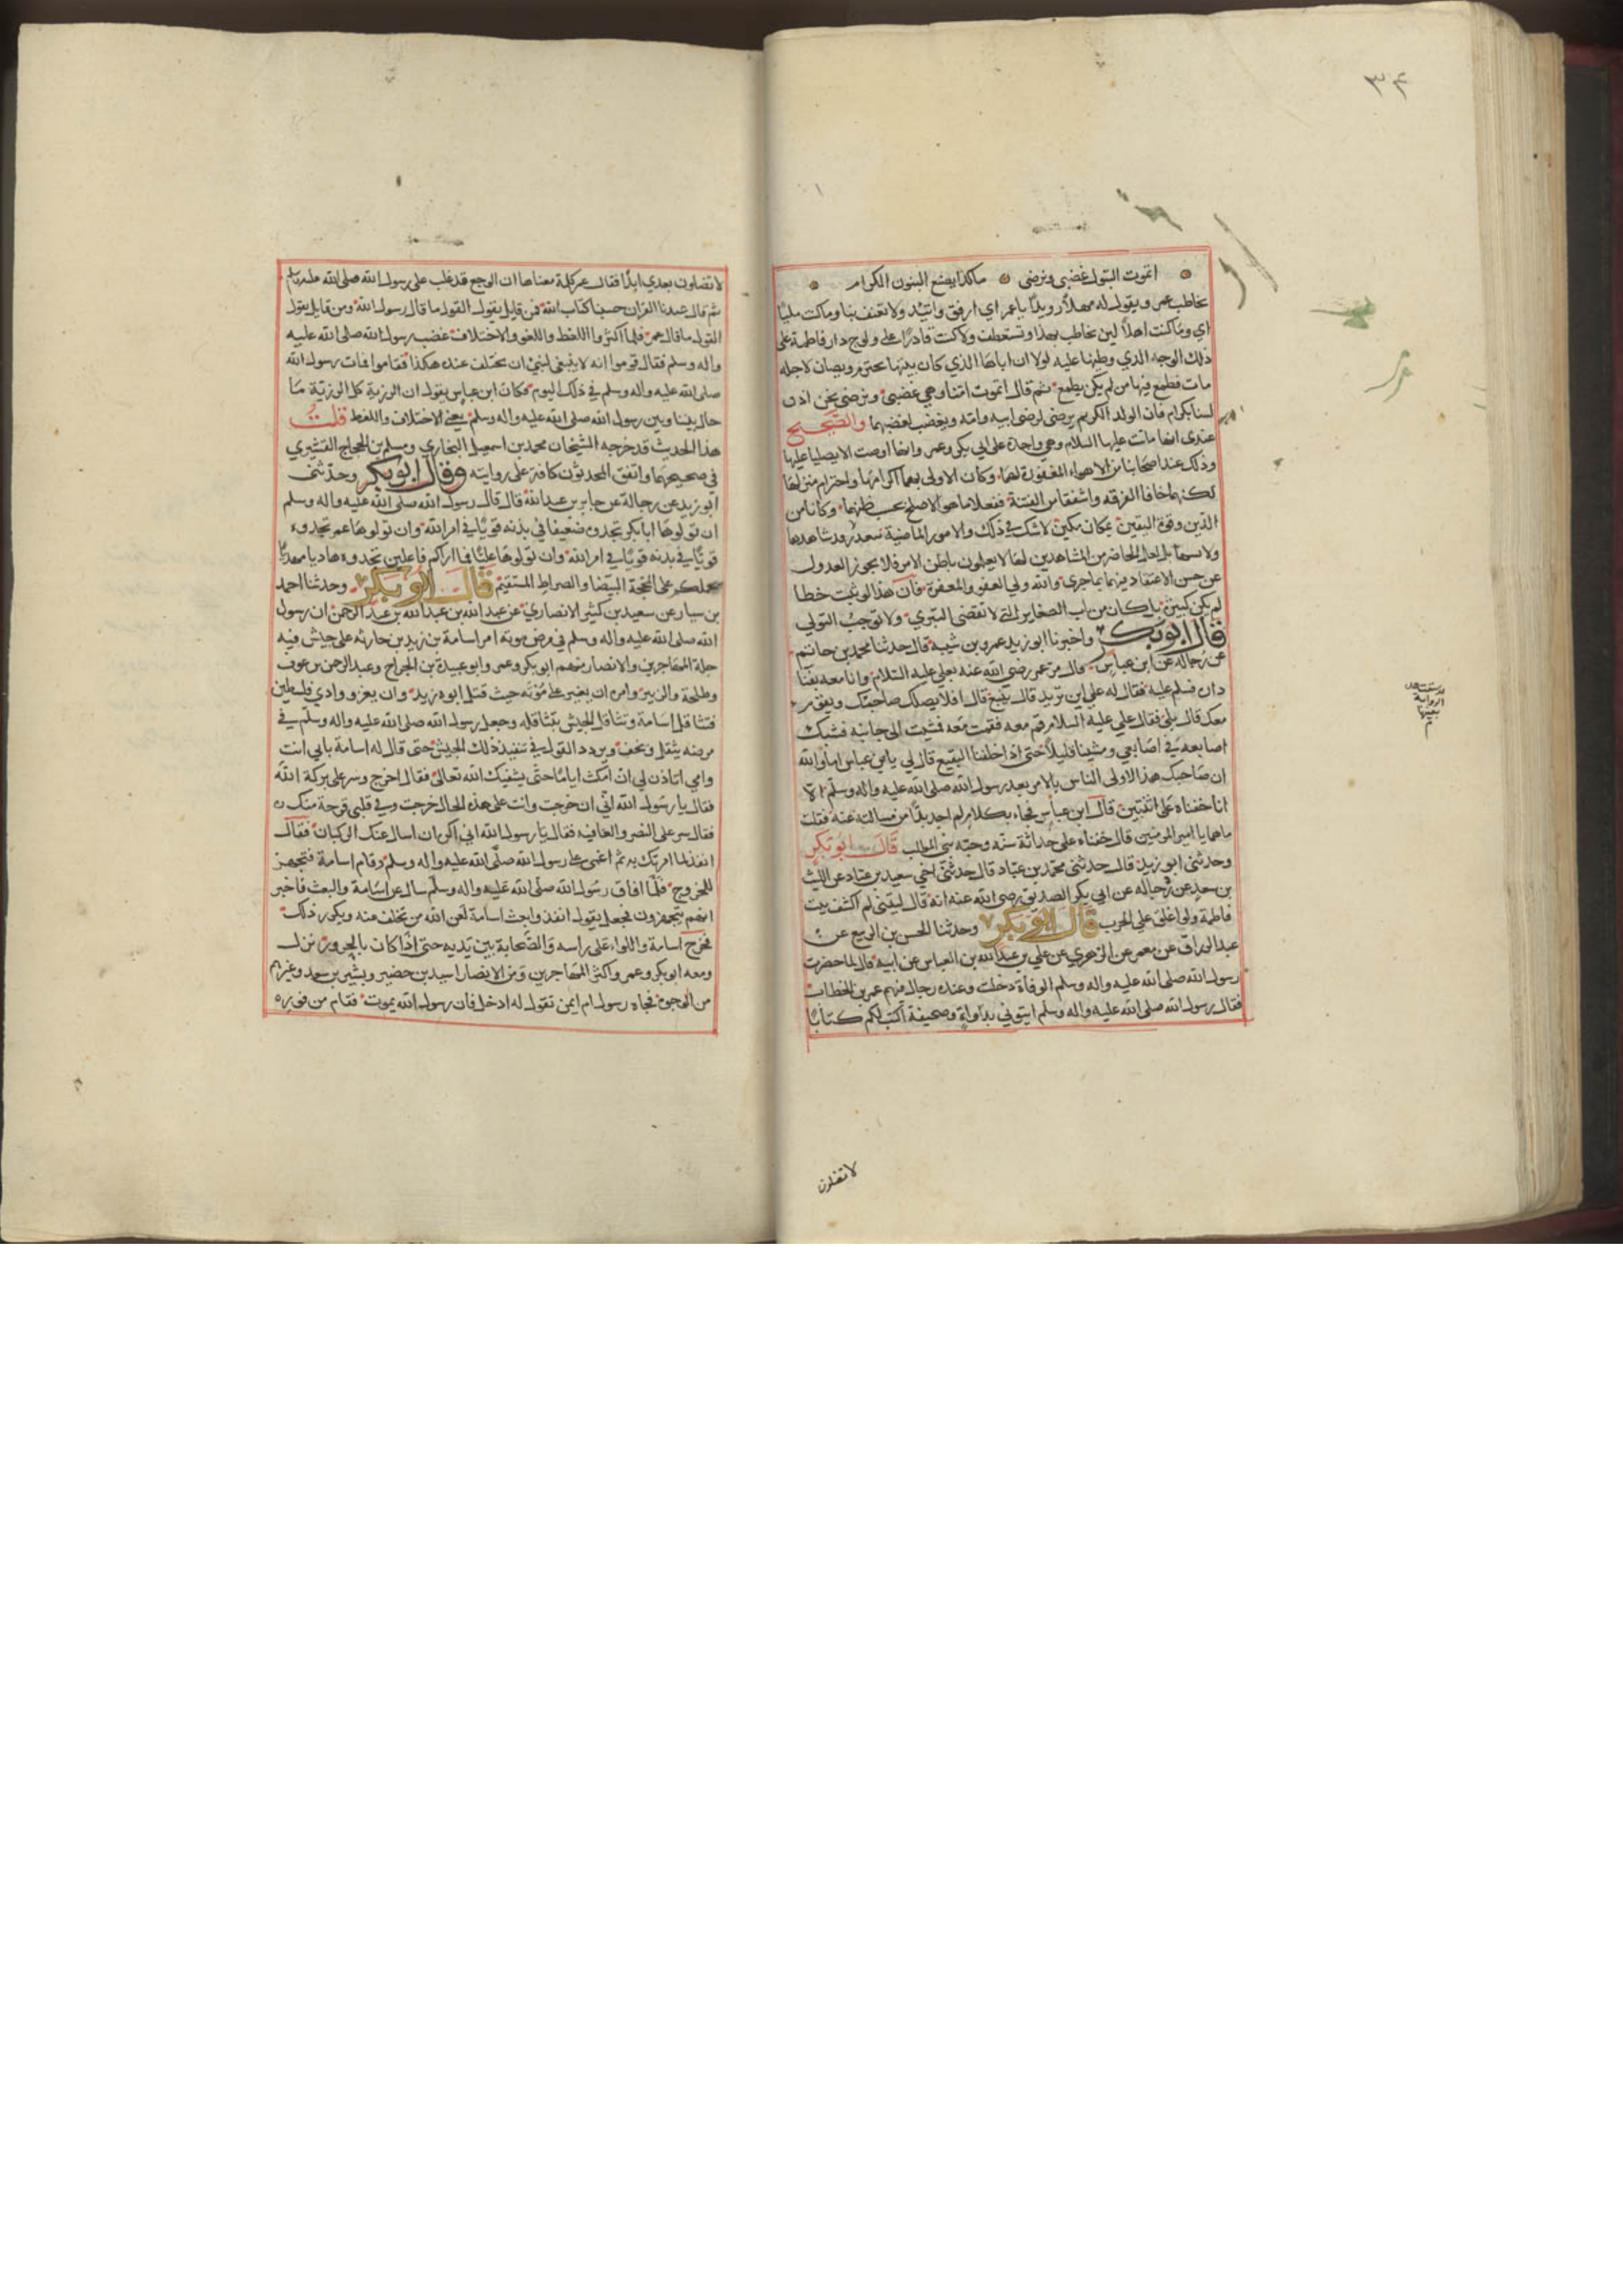 ٣٤
اتموت البتول غضبى ونرضى ما كذا يصنع البنون الكرام
يخاطب عمر ويقول له مهلا رويدا يا عمر اي ارفق واتئد ولا تعنف بنا وما كنت مليا
اي وما كنت اهلا لين يخاطب بهذا وتستعطف ولا كنت قادرا على ولوج دار فاطمة على
ذلك الوجه الذي ولجتها عليه لولا ان اباها الذي كان بيتها يحترم ويصان لاجله
مات فطمع فيها من لم يكن يطمع ثم قال اتموت امنا وهي غضبى ونرضى نحن اذن
لسنا بكرام فان الولد الكريم يرضى لرضى ابيه وامه ويغضب لغضبهما والصحيح
عندى انها ماتت عليها السلام وهي واجدة على ابي بكر وعمر وانها اوصت الا يصليا عليها
وذلك عند اصحابنا من الاهواء المغفورة لهما وكان الاولى بهما اكرامها واحترام منزلها
لكنهما خافا الفرقة واشفقا من الفتنة ففعلا ما هو الاصلح بحسب ظنهما وكانا من
الدين وقوة اليقين بمكان مكين لا شك في ذلك والامور الماضية يتعذر
ولا سيما بل لعل الحاضرين المشاهدين لها لا يعلمون باطن الامر فلا يجوز العدول
عن حسن الاعتقاد فيهما بما جرى والله ولي العفو والمغفرة فان هذا لو ثبت خطا
لم يكن كبيرة بل كان من باب الصغاير التي لا تقتضى التبري ولا توجب التولي
قال ابو بكر واخبرنا ابو زيد عمرو بن شيبة قال حدثنا محمد بن حاتم
عن رجاله عن ابن عباس قال مر عمر رضى الله عنه بعلي عليه السلام وانا معه بفنا
دان فسلم عليه فقال له علي اين تريد قال بقيع قال افلا يصلك صاحبك ويقوم
معك قال بلى فقال علي عليه السلام قم معه فقمت معه فمشيت الى جانبه فشبك
اصابعه في اصابعي ومشينا قليلا حتى اذا خلفنا البقيع قال لي يا ابن عباس اما والله
ان صاحبك هذا لاولى الناس بالامر بعد رسول الله صلى الله عليه واله وسلم الا
انا خفناه على اثنتين قال ابن عباس فجاء بكلام لم اجد بدا من مسالته عنه فقلت
ما هما يا امير المومنين قال خفناه على حداثة سنه وحبه بني المطلب قال ابو بكر
وحدثنى ابو زيد قال حدثنى محمد بن عباد قال حدثنى اخي سعيد بن عباد عن الليث
بن سعد عن رجاله عن ابي بكر الصديق رضى الله عنه انه قال ليتنى لم اكشف بيت
فاطمة ولو اغلق على الحرب قال ابو بكر وحدثنا الحسن بن الربيع عن
عبد الرزاق عن معمر عن الزهري عن علي بن عبد الله بن العباس عن ابيه قال لما حضرت
رسول الله صلى الله عليه واله وسلم الوفاة دخلت وعنده رجال منهم عمر بن الخطاب
فقال رسول الله صلى الله عليه واله وسلم ايتوني بدواة وصحيفة اكتب لكم كتابا
لا تضلون
لا تضلون بعدي ابدا فقال عمر كلمة معناها ان الوجع قد غلب على رسول الله صلى الله عليه واله وسلم
ثم قال عندنا القران حسبنا كتاب الله فمن قايل يقول القول ما قال رسول الله ومن قايل يقول
القول ما قال عمر فلما اكثروا اللغط واللغو والاختلاف غضب رسول الله صلى الله عليه
واله وسلم فقال قوموا انه لا ينبغى لنبي ان يختلف عنده هكذا فقاموا فمات رسول الله
صلى الله عليه واله وسلم في ذلك اليوم فكان ابن عباس يقول ان الرزية كل الرزية ما
حال بيننا وبين رسول الله صلى الله عليه واله وسلم يعني الاختلاف واللغط قلت
هذا الحديث قد خرجه الشيخان محمد بن اسمعيل البخاري ومسلم بن الحجاج القشيري
في صحيحيهما واتفق المحدثون كافة على روايته وقال ابو بكر وحدثنى
ابو زيد عن رجاله عن جابر بن عبد الله قال قال رسول الله صلى الله عليه واله وسلم
ان تولوها ابا بكر تجدوه ضعيفا في بدنه قويا في امر الله وان تولوها عمر تجدوه
قويا في بدنه قويا في امر الله وان تولوها عليا وما اراكم فاعلين تجدوه هاديا مهديا
يحملكم على المحجة البيضا والصراط المستقيم قال ابو بكر وحدثنا احمد
بن سيار عن سعيد بن كثير الانصاري عن عبد الله بن عبد الله بن عبد الرحمن ان رسول
الله صلى الله عليه واله وسلم في مرض موته امر اسامة بن زيد بن حارثه على جيش فيه
جلة المهاجرين والانصار منهم ابو بكر وعمر وابو عبيدة بن الجراح وعبد الرحمن بن عوف
وطلحة والزبير وامره ان يغير على مؤته حيث قتل ابوه زيد وان يغزو وادي فلسطين
فتثاقل اسامة وتثاقل الجيش بتثاقله وجعل رسول الله صلى الله عليه واله وسلم في
مرضه يثقل ويخف ويردد القول في تنفيذ ذلك الجيش حتى قال له اسامة بابي انت
وامي اتاذن لي ان امكث اياما حتى يشفيك الله تعالى فقال اخرج وسر على بركة الله
فقال يا رسول الله اني ان خرجت وانت على هذه الحال خرجت وفي قلبي قرحة منك
فقال سر على النصر والعافيه فقال يا رسول الله اني اكره ان اسال عنك الركبان فقال
انفذ لما امرتك به ثم اغمى على رسول الله صلى الله عليه واله وسلم وقام اسامة فتجهز
للخروج فلما افاق رسول الله صلى الله عليه واله وسلم سال عن اسامة والبعث فاخبر
انهم يتجهزون فجعل يقول انفذوا بعث اسامة لعن الله من تخلف عنه ويكرر ذلك
فخرج اسامة واللواء على راسه والصحابة بين يديه حتى اذا كان بالجرف نزل
ومعه ابو بكر وعمر واكثر المهاجرين ومن الانصار اسيد بن حضير وبشير بن سعد وغيرهم
من الوجوه فجاه رسول ام ايمن تقول له ادخل فان رسول الله يموت فقام من فوره